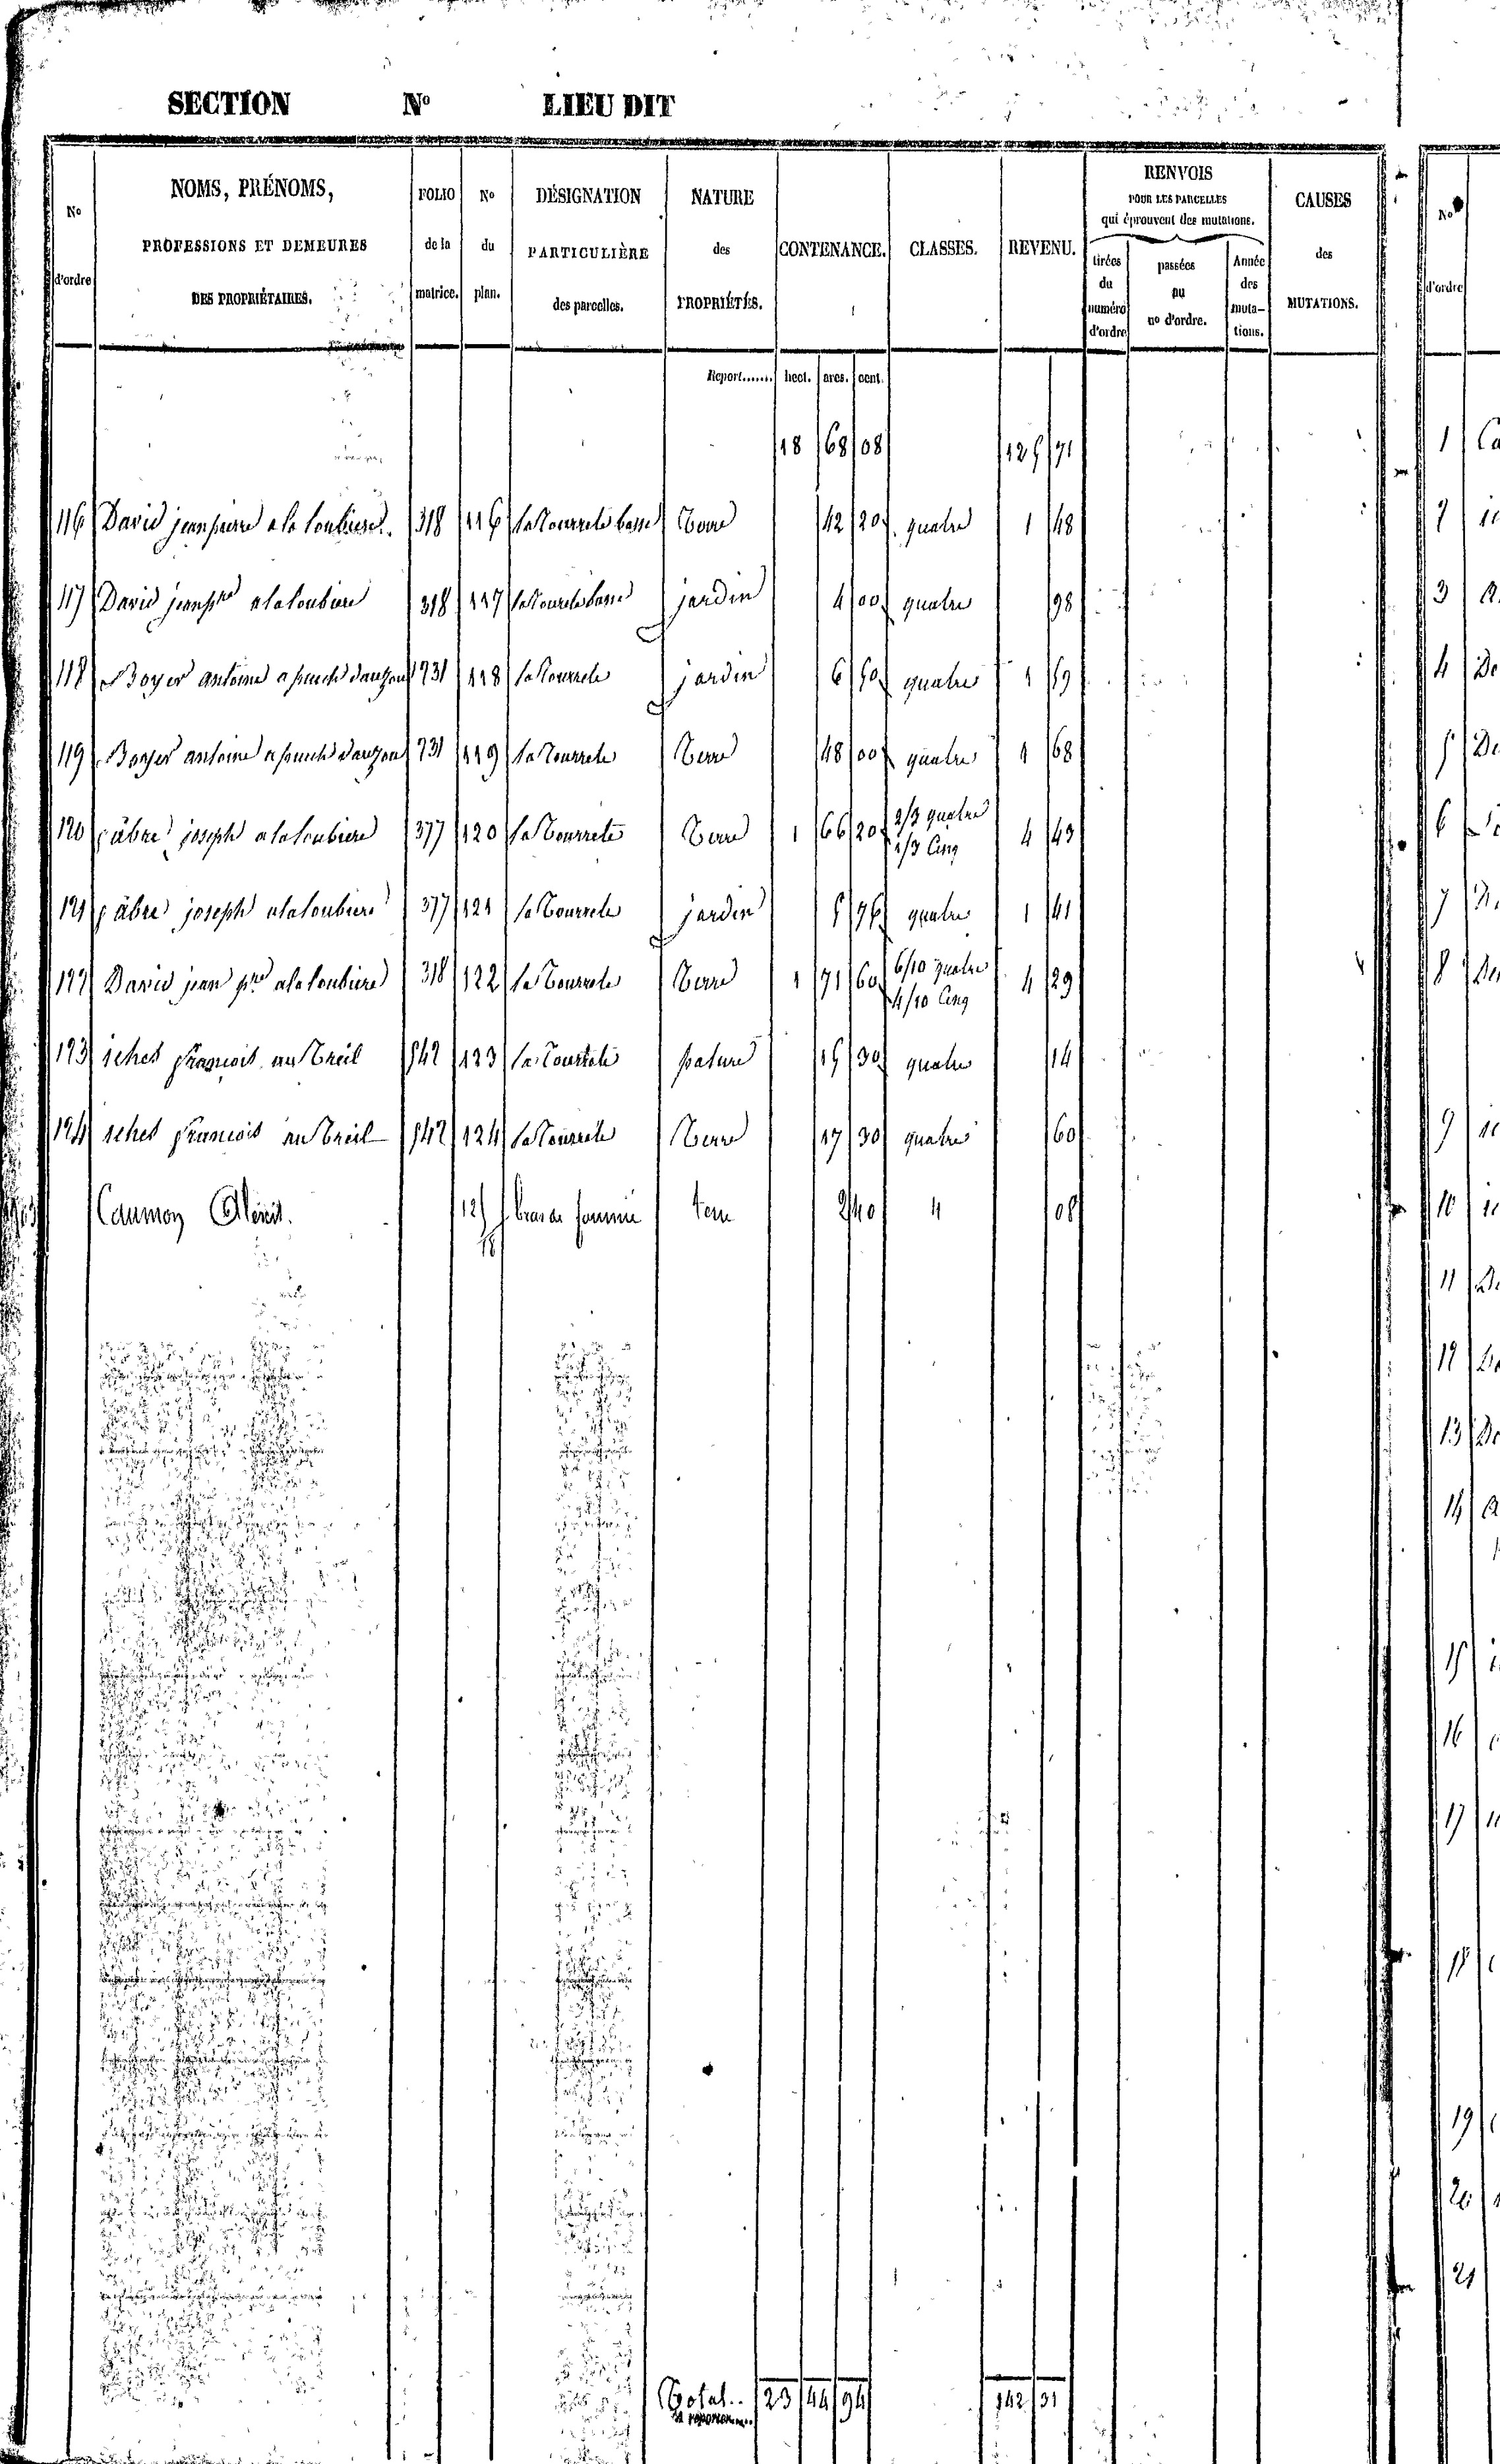 SECTION N° LIEU DIT
N° d'ordre | NOMS, PRÉNOMS, PROFESSIONS ET DEMEURES DES PROPRIÉTAIRES. | FOLIO de la matrice. | N° du plan. | DÉSIGNATION PARTICULIÈRE des parcelles. | NATURE des PROPRIÉTÉS. | CONTENANCE. | CLASSES. | REVENU. | RENVOIS POUR LES PARCELLES qui éprouvent des mutations. | tirées du numéro d'ordre | passées au n° d'ordre. | Année des mutations. | CAUSES des MUTATIONS. | N° d'ordre
Report...... hect. ares. cent.
18 68 08 125 71
116 David jean pierre a la loubiere 318 116 la Tourrete basse Terre 42 20 quatre 1 48
117 David jean pre a la loubiere 318 117 la Tourete basse jardin 4 00 quatre 98
118 Boyer antoine a 231 118 la Tourrete jardin 6 50 quatre 1 59
119 Boyer antoine a 231 119 la Tourrete Terre 48 00 quatre 1 68
120 fabre joseph a la loubiere 377 120 la Tourrete Terre 1 66 20 2/3 quatre 1/3 Cinq 4 43
121 fabre joseph a la loubiere 377 121 la Tourrete jardin 5 76 quatre 1 41
122 David jean pre a la loubiere 318 122 la Tourrete Terre 1 71 60 6/10 quatre 4/10 Cinq 4 29
123 iches francois au Treil 542 123 la Tourrete pature 15 30 quatre 14
124 iches francois au Treil 542 124 la Tourrete Terre 17 30 quatre 60
Caumon terre 2 40 4 08
Total.. 23 44 94 142 31
à reporter....
1
2
3
4
5
6
7
8
9
10
11
12
13
14
15
16
17
18
19
20
21